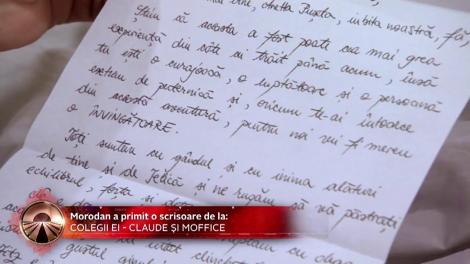 noastră,
Știm că aceasta a fost poate cea mai grea
experiență din câte ai trăit până acum, însă
tu ești o curajoasă, o luptătoare și o persoană
extrem de puternică și, oricum te-ai întoarce
din această aventură, pentru noi vei fi mereu
o ÎNVINGĂTOARE.
Toți suntem cu gândul și cu inima alături
de tine și de și ne rugăm să vă păstrați
echilibrul, forța și
cu drag
gustul
Morodan a primit o scrisoare de la:
COLEGII EI - CLAUDE ȘI MOFFICE